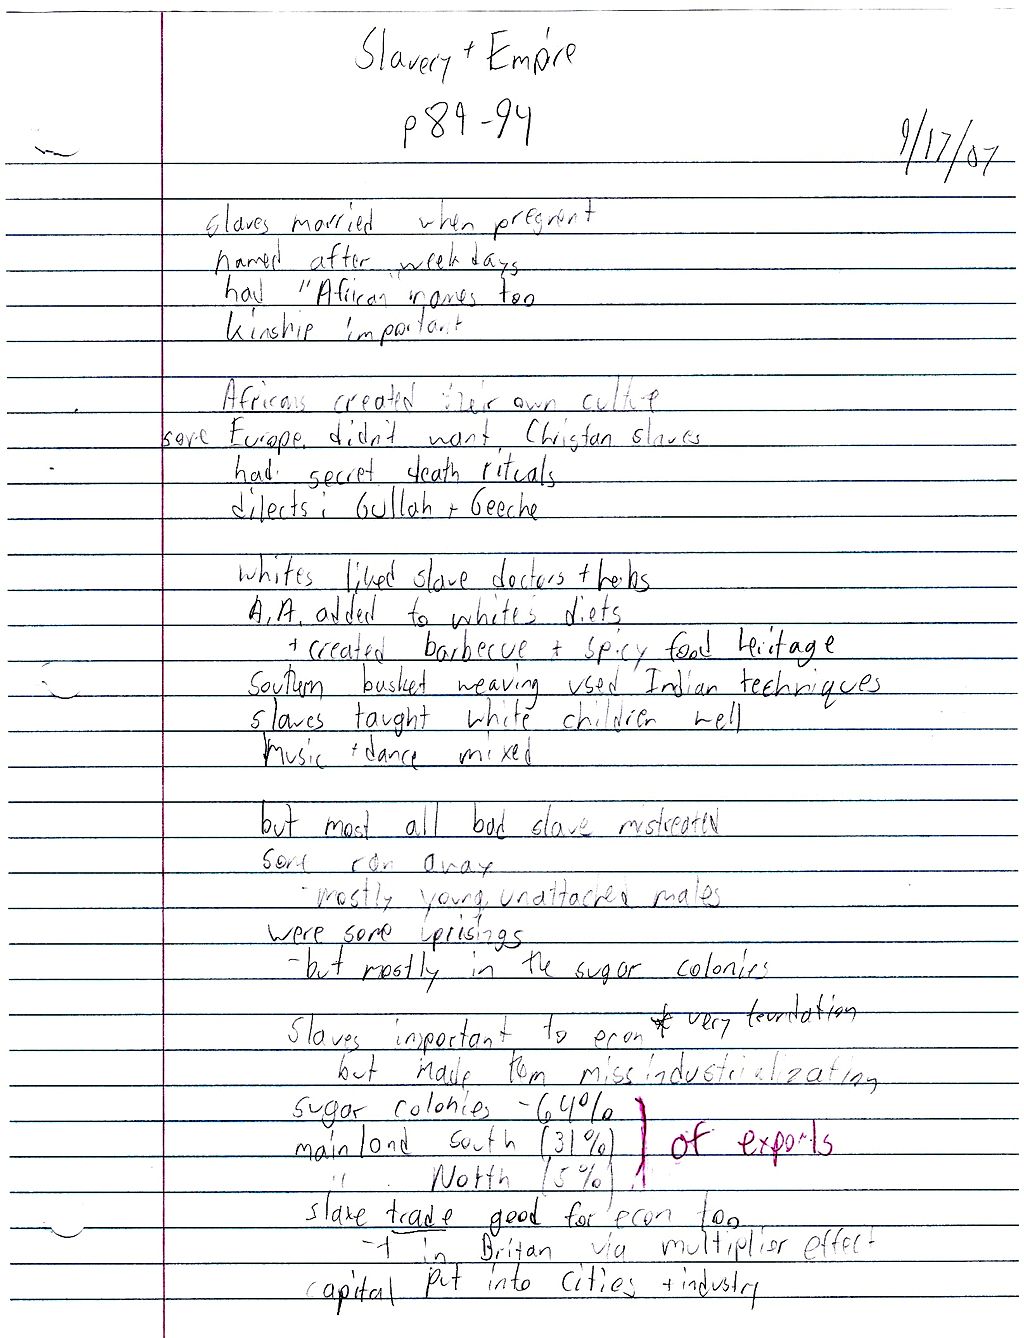 Slavery + Empire
p89-94
9/17/07
slaves married when pregnant
named after weekdays
had "African names too
kinship important
Africans created their own culture
some Europe. didn't want Christan slaves
had secret death rituals
dilects: Gullah + Geeche
whites liked slave doctors + herbs
A.A. added to white's diets
+ created barbecue + spicy food heritage
Southern basket weaving used Indian techniques
slaves taught white children well
Music + dance mixed
but most all bad slave mistreated
some ran away
- mostly young unattached males
were some uprisings
- but mostly in the sugar colonies
Slaves important to econ * very foundation
but made them miss industrialization
sugar colonies - 64%
mainland south (31%) of exports
" North (5%)
slave trade good for econ too
- + in Britan via multiplier effect
capital put into cities + industry